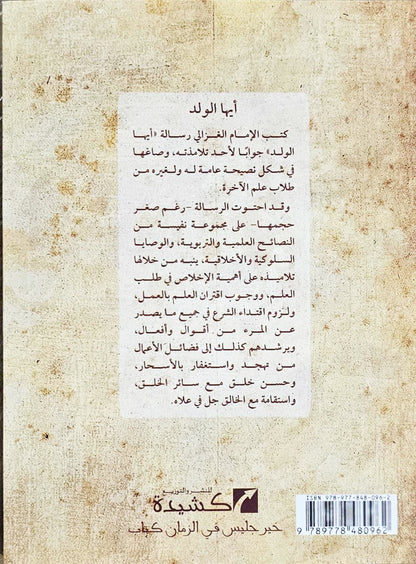 أيها الولد
كتب الإمام الغزالي رسالة «أيها
الولد» جوابًا لأحد تلامذته، وصاغها
في شكل نصيحة عامة له ولغيره من
طلاب علم الآخرة.
وقد احتوت الرسالة -رغم صغر
حجمها- على مجموعة نفيسة من
النصائح العلمية والتربوية، والوصايا
السلوكية والأخلاقية، ينبه من خلالها
تلاميذه على أهمية الإخلاص في طلب
العلم، ووجوب اقتران العلم بالعمل،
ولزوم اقتداء الشرع في جميع ما يصدر
عن المرء من أقوال وأفعال،
ويرشدهم كذلك إلى فضائل الأعمال
من تهجد واستغفار بالأسحار،
وحسن خلق مع سائر الخلق،
واستقامة مع الخالق جل في علاه.
للنشر والتوزيع
كشيدة
خير جليس في الزمان كتاب
ISBN 978-977-848-096-2
9 789778 480962